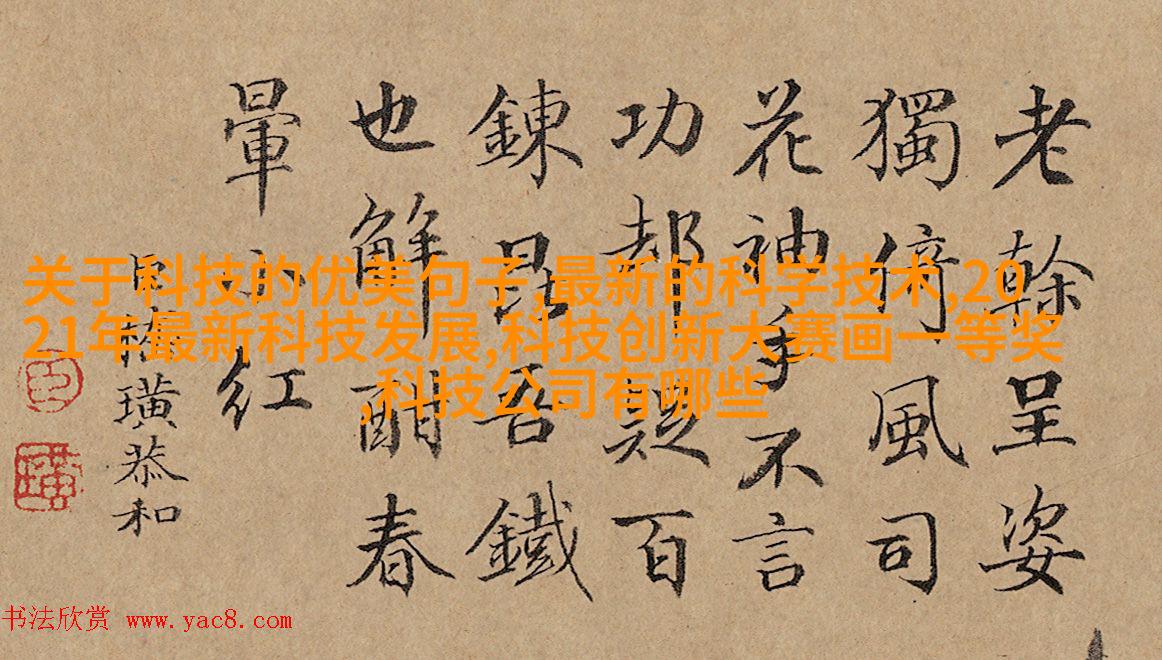 老幹呈姿
獨倚風司
花神手不言
功百
鍊昆吾鐵
也解酣春
暈紅
臣璜恭和
臣
璜
关于科技的优美句子,最新的科学技术,20
21年最新科技发展,科技创新大赛画一等奖
,科技公司有哪些
书法欣赏 www.yac8.com